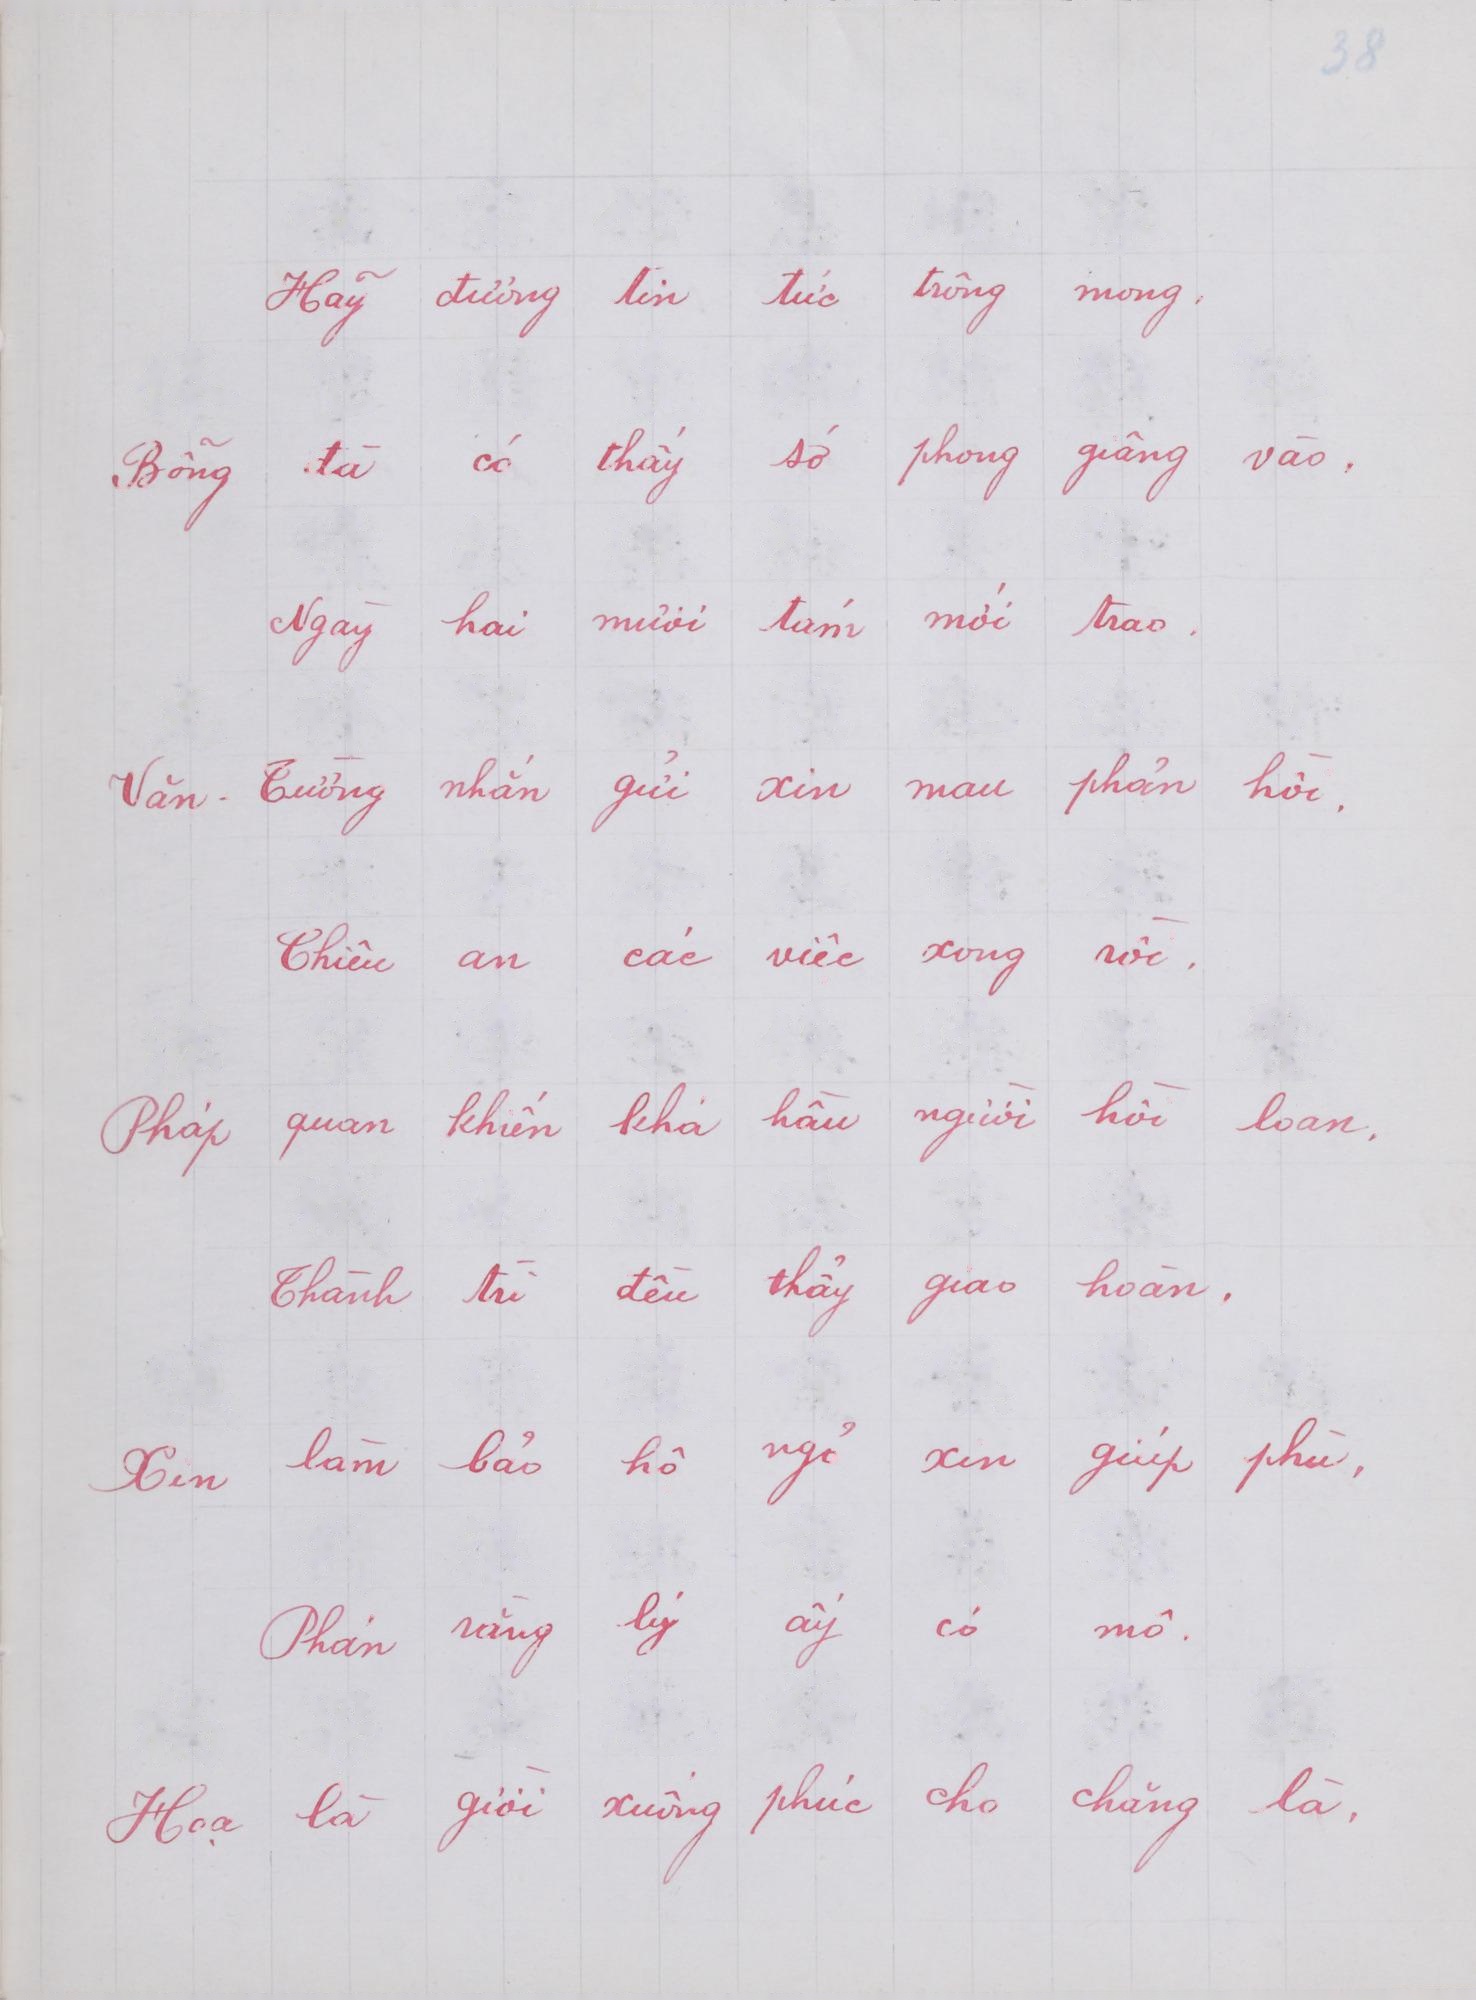 38
Hãy đương tin tức trông mong.
Bỗng tà có thấy sớ phong giâng vào.
Ngày hai mươi tám mới trao.
Văn-Tường nhắn gửi xin mau phản hồi.
Chiêu an các viêc xong rồi.
Pháp quan khiến khá hầu người hồi loan.
Thành trì đều thảy giao hoàn.
Xin làm bảo hô ngỏ xin giúp phù.
Phán rằng lý ấy có mô.
Hoạ là giời xuống phúc cho chăng là.